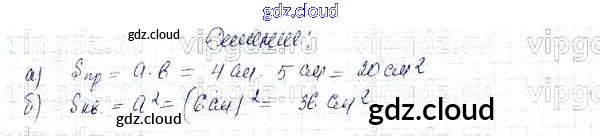 gdz.cloud
Решение:
gdz.cloud
а) Sпр = a · b = 4 см · 5 см = 20 см²
б) Sкв. = a² = (6 см)² = 36 см²
gdz.cloud
gdz.cloud